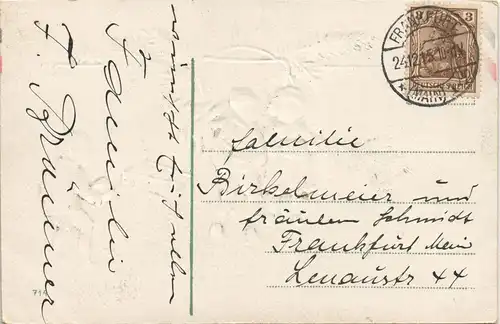 wünscht Ihnen allen
Familie
F. Brünner
3
FRANKFURT
24.12.15
(MAIN)
Familie
Birkelmeier und
fräulein Schmidt
Frankfurt Mein
Lenaustr 44